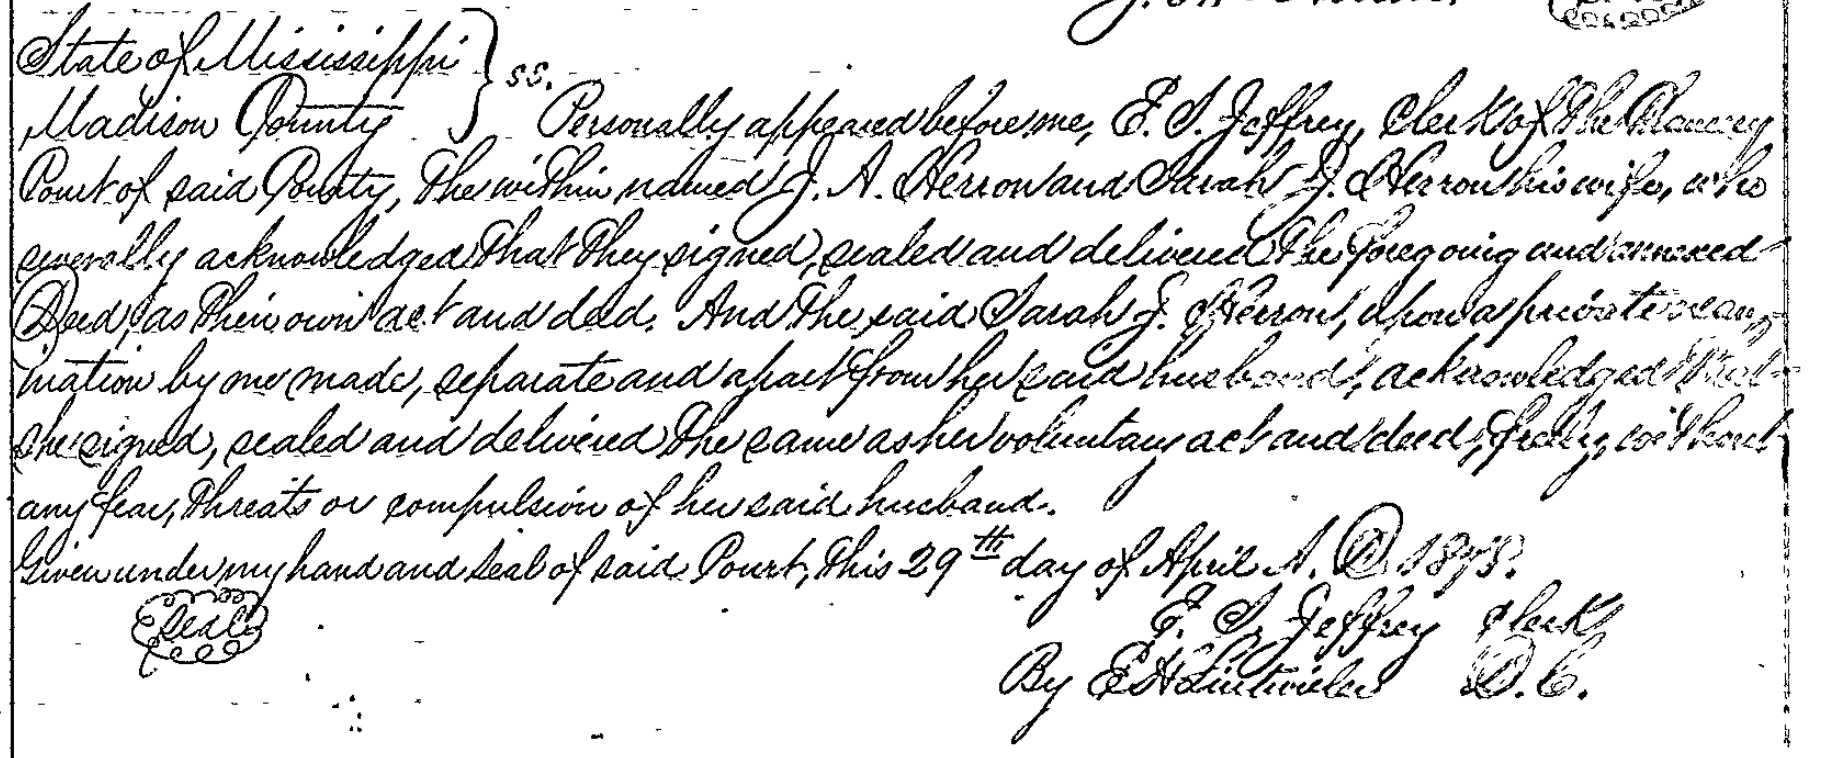 State of Mississippi } ss.
Madison County } Personally appeared before me, E. S. Jeffrey, Clerk of the Chancery
Court of said County, the within named J. A. Herron and Sarah J. Herron his wife, who
severally acknowledged that they signed, sealed and delivered the foregoing and annexed
Deed, as their own act and deed. And the said Sarah J. Herron, upon a private exam-
ination by me made, separate and apart from her said husband, acknowledged that
she signed, sealed and delivered the same as her voluntary act and deed, freely, without
any fear, threats or compulsion of her said husband.
Given under my hand and seal of said Court, this 29th day of April A. D.
Seal
E. S. Jeffrey Clerk
By E H D. C.